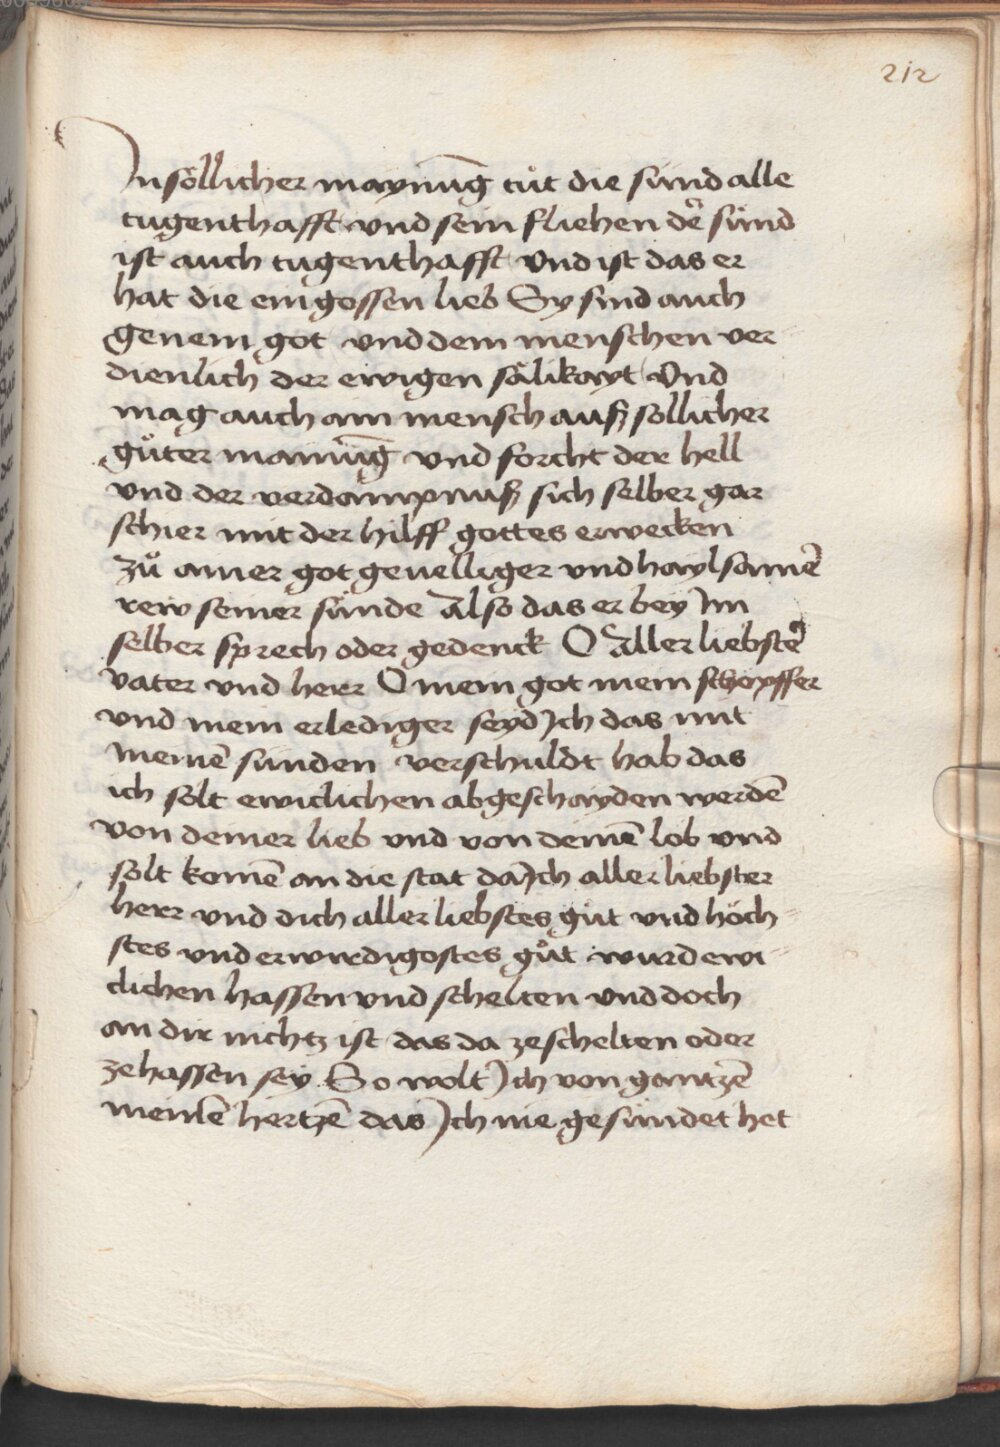 212
In söllicher maynūg tůt die sünd alle
tugenthafft vnd sein fliehen dē sünd
ist auch tugenthafft vnd ist das er
hat die eingossen lieb Sy sind auch
genem got vnd dem menschen ver-
dienlich der ewigen sälikayt Vnd
mag auch ain mensch auß sollicher
gůter mainūg vnd forcht der hell
vnd der verdampnuß sich selber gar
schier mit der hilff gottes erwecken
zů ainer got geuelliger vnd haylsamē
rew seiner sünde Also das er bey Im
selber sprech oder gedenck O aller liebster
vater vnd herr O mein got mein schöpffer
vnd mein erlediger seyd Ich das mit
meinē sunden verschuldt hab das
ich solt ewiclichen abgeschayden werdē
von deiner lieb vnd von deinē lob vnd
solt komē an die stat da Ich aller liebster
herr vnd dich aller liebstes gůt vnd höch-
stes vnd erwirdigostes gůt wurd ewi-
clichen hassen vnd schelten vnd doch
an dir nichtz ist das da zeschelten oder
zehassen sey So wolt Ich von gantzē
meinē hertzē das Ich nie gesündet het